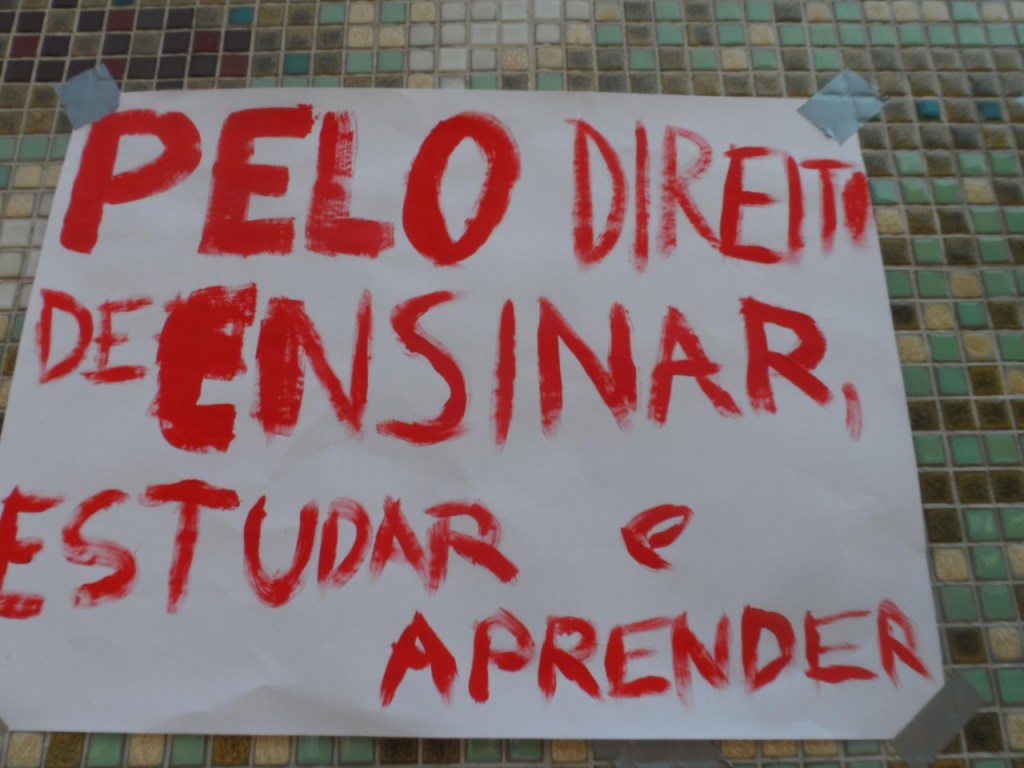 PELO DIREITO
DE ENSINAR,
ESTUDAR e
APRENDER